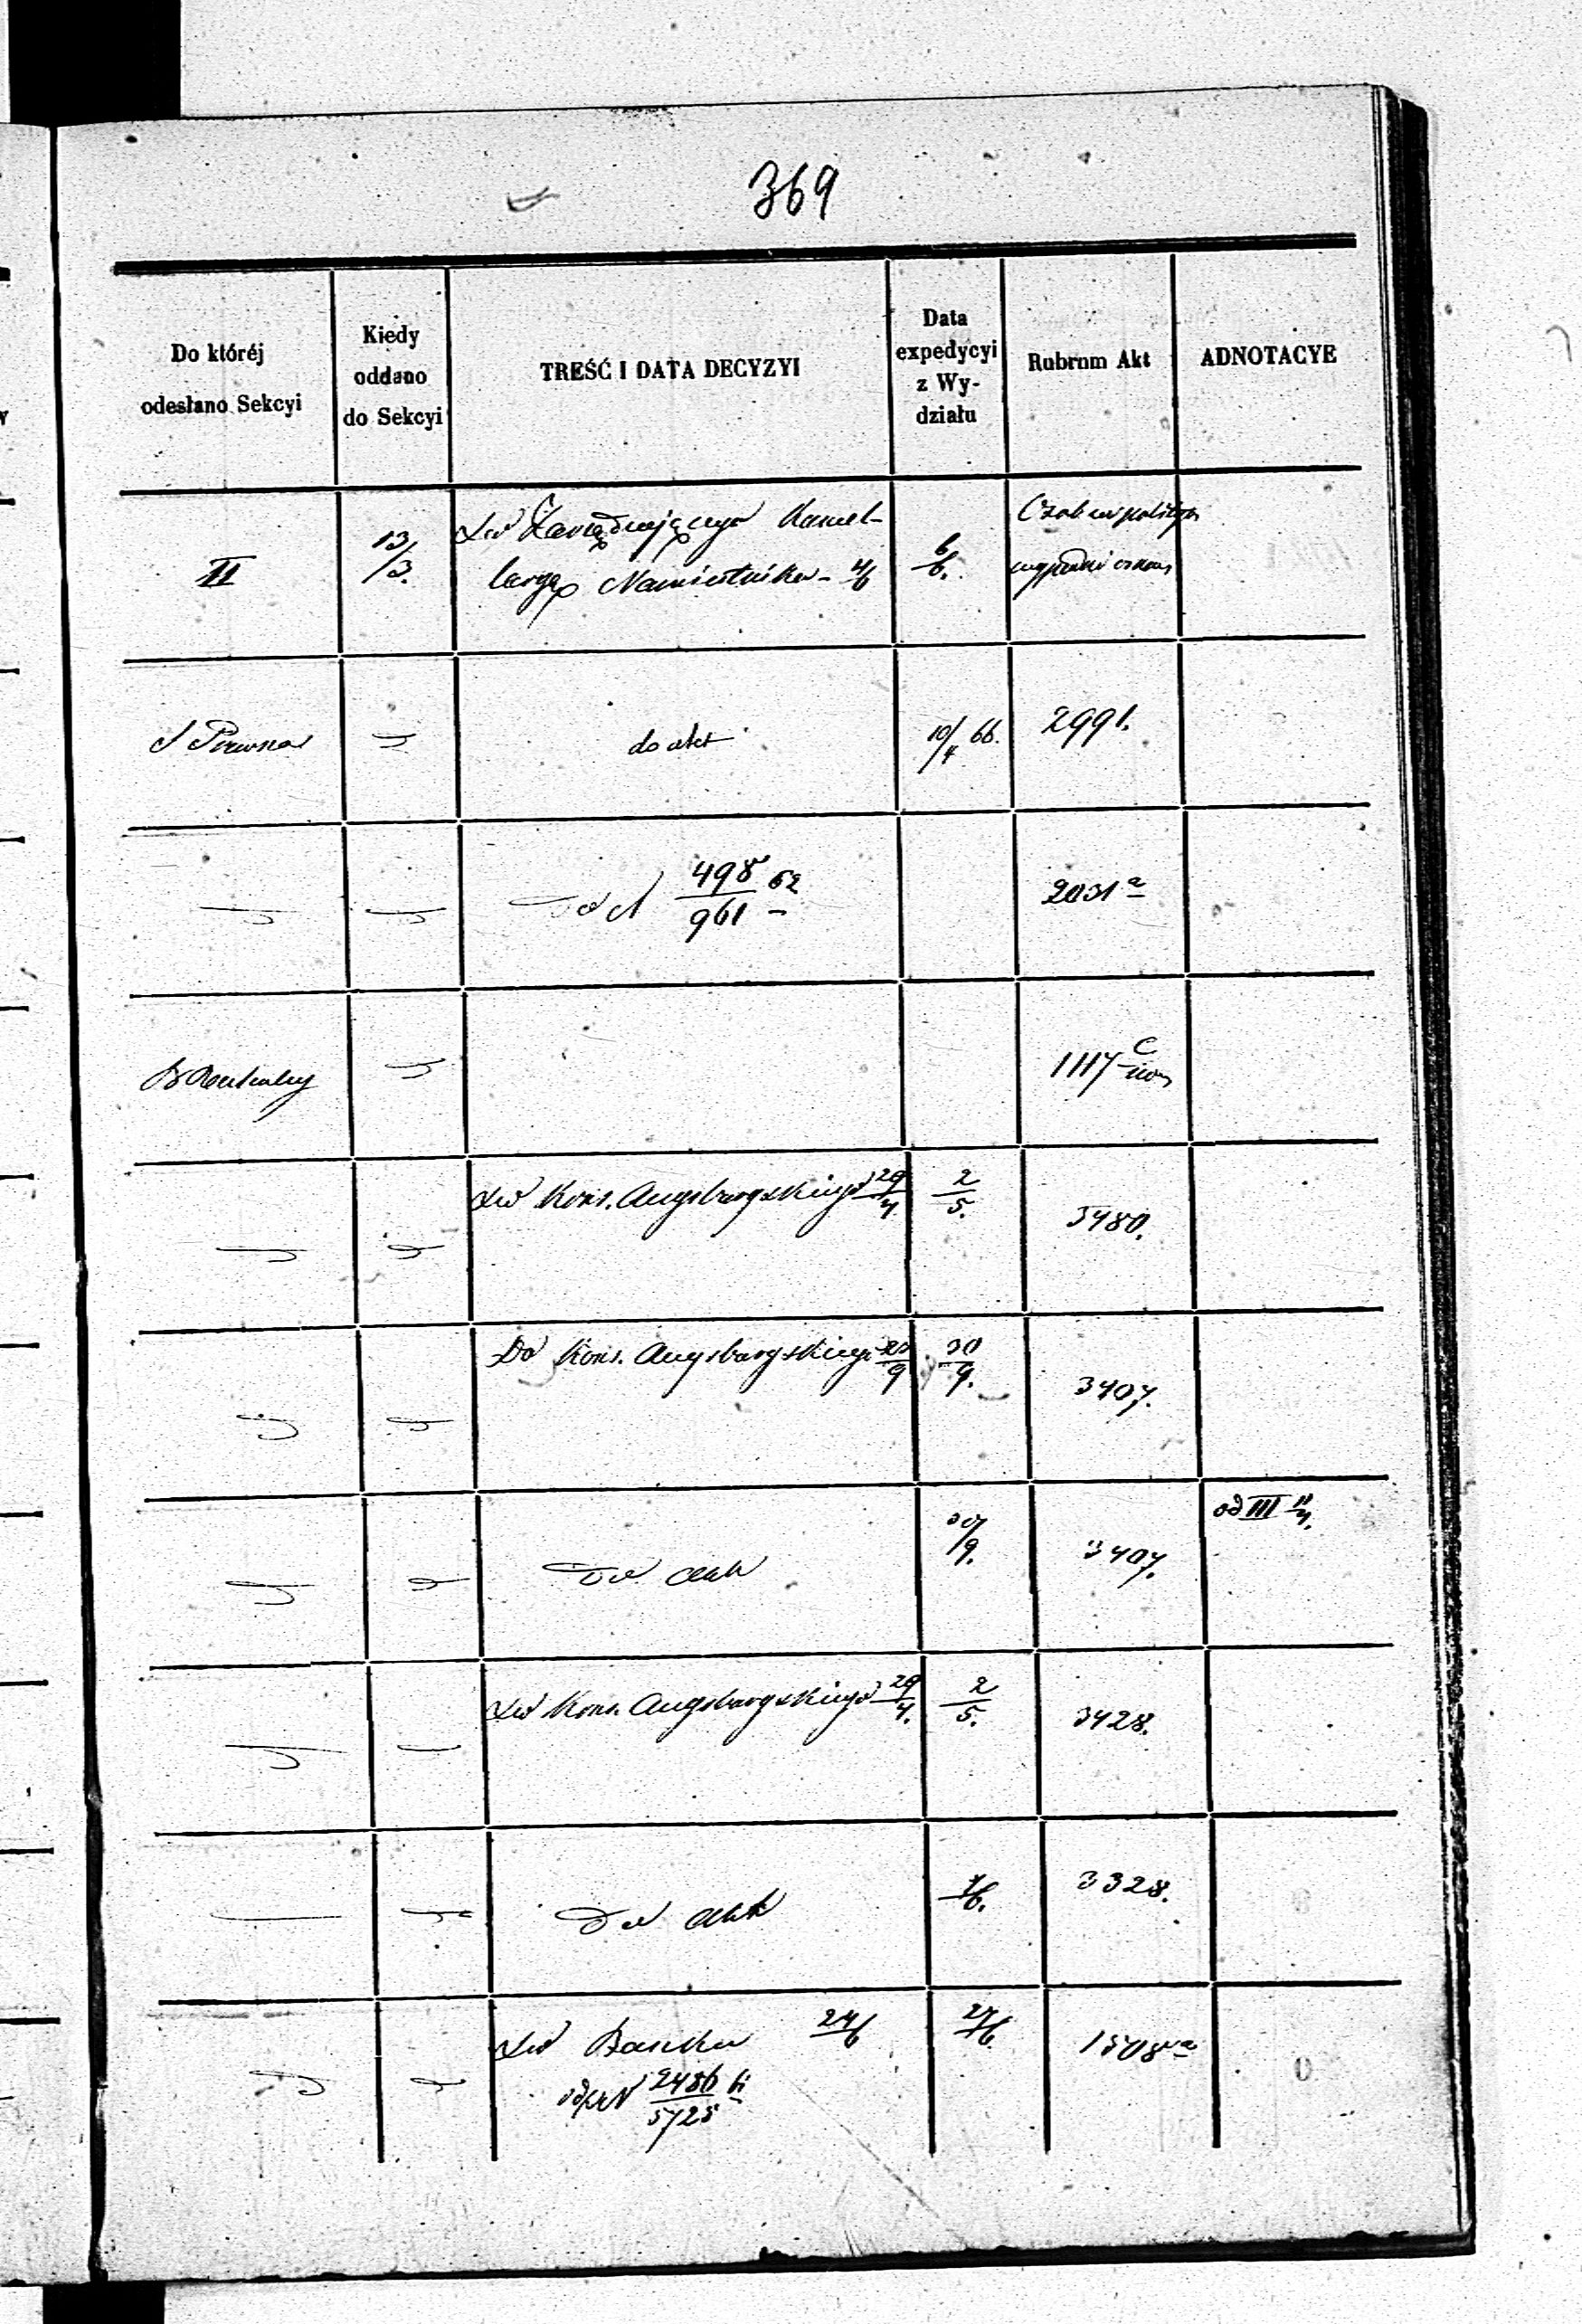 369
Do któréj
odesłano Sekcyi
Kiedy
oddano
do Sekcyi
TREŚĆ I DATA DECYZYI
Data
expedycyi
z Wy-
działu
Rubrum Akt
ADNOTACYE
II
13/3.
Do Zarządzającego Kancel-
laryą Namiestnika 4/6
6/6.
do akt
10/4 66.
2991.
Do N 498/961 62
2031 a
1117 C
Do Kons. Augsburgskiego 29/4
2/5.
3480.
Do Kons. Augsburgskiego 23/9
30/9.
3407.
Do akt
30/9.
3407.
od III 11/4.
Do Kons. Augsburgskiego 29/4.
2/5.
3428.
Do akt
3328.
Do Banku 24/6
2486/5725
27/6.
1508 a